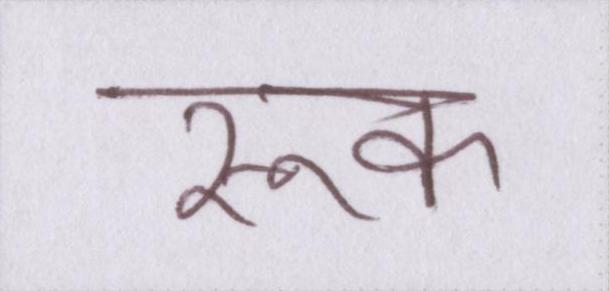 रूक